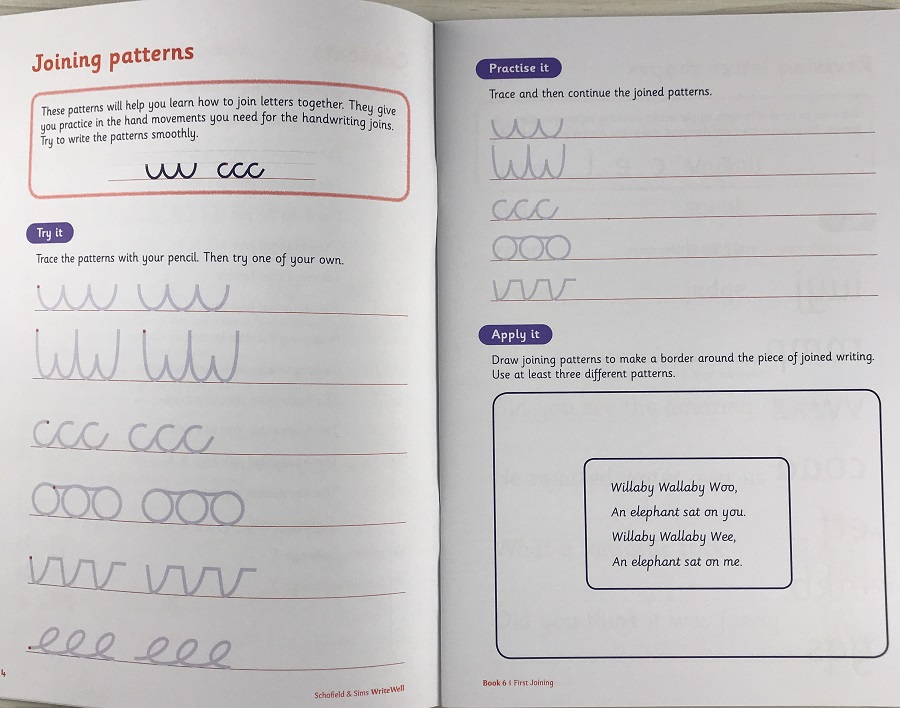 Joining patterns
These patterns will help you learn how to join letters together. They give
you practice in the hand movements you need for the handwriting joins.
Try to write the patterns smoothly.
ccc
Try it
Trace the patterns with your pencil. Then try one of your own.
ccc ccc
ooo ooo
vvv vvv
eee eee
4
Schofield & Sims WriteWell
Practise it
Trace and then continue the joined patterns.
ccc
ooo
vvv
Apply it
Draw joining patterns to make a border around the piece of joined writing.
Use at least three different patterns.
Willaby Wallaby Woo,
An elephant sat on you.
Willaby Wallaby Wee,
An elephant sat on me.
Book 6 | First Joining